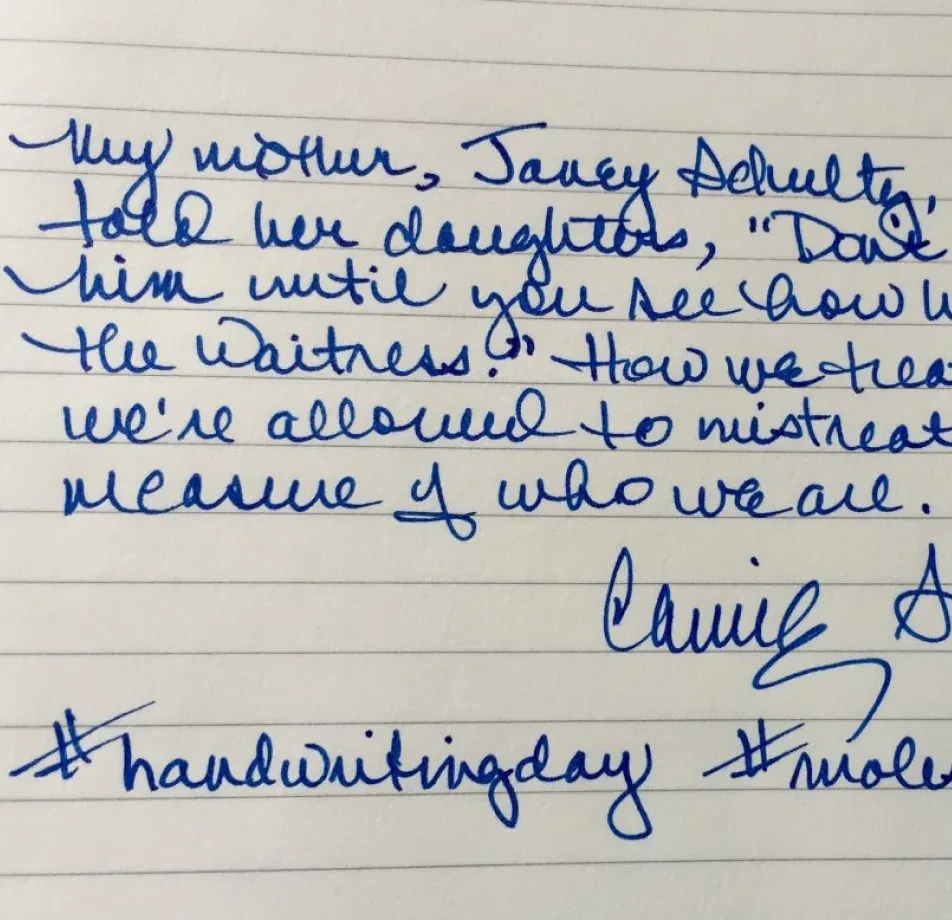 My mother, Janey Schultz,
told her daughters, "Don't
him until you see how h
the waitress." How we trea
we're allowed to mistreat
measure of who we are.
Connie S
#handwritingday #mole